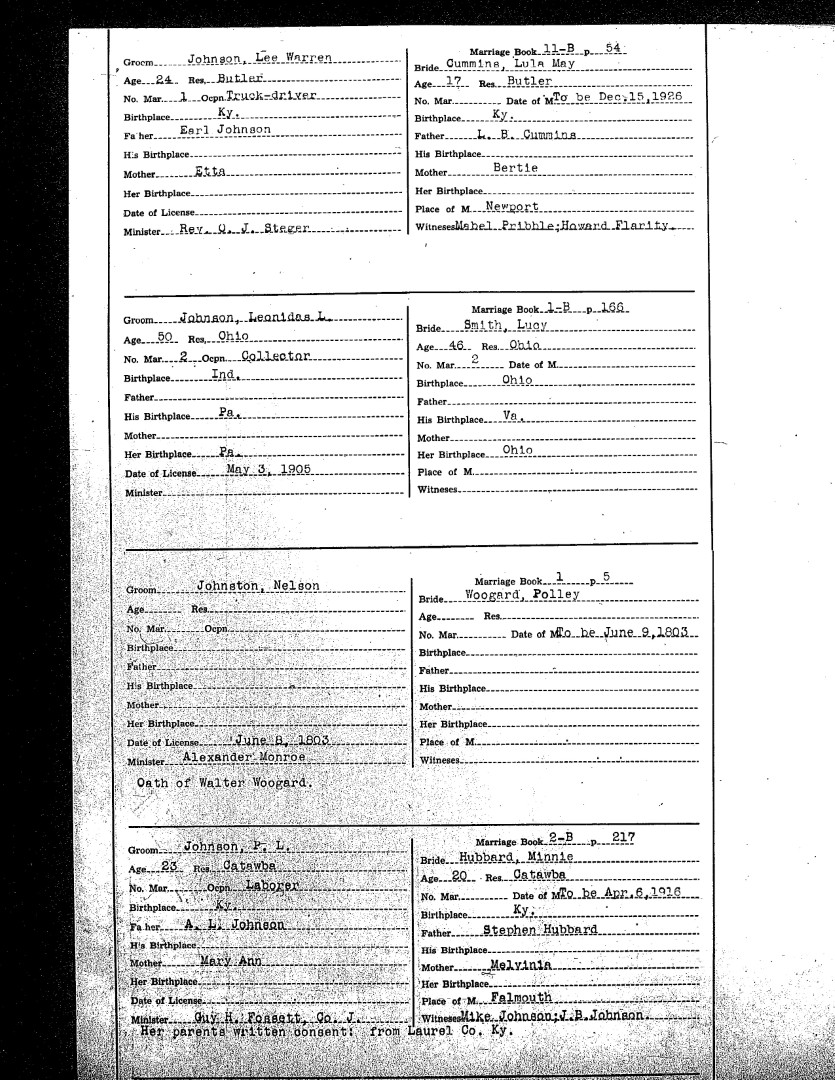 Groom Johnson, Lee Warren
Age 24 Res. Butler
No. Mar. 1 Ocpn. Truck-driver
Birthplace Ky.
Father Earl Johnson
His Birthplace
Mother Etta
Her Birthplace
Date of License
Minister Rev. O. J. Steger
Marriage Book 11-B p. 54
Bride Cummins, Lula May
Age 17 Res. Butler
No. Mar. Date of M. To be Dec. 15, 1926
Birthplace Ky.
Father L. B. Cummins
His Birthplace
Mother Bertie
Her Birthplace
Place of M. Newport
Witnesses Mabel Pribble; Howard Flarity.
Groom Johnson, Leonidas L.
Age 50 Res. Ohio
No. Mar. 2 Ocpn. Collector
Birthplace Ind.
Father
His Birthplace Pa.
Mother
Her Birthplace Pa.
Date of License May 3, 1905
Minister
Marriage Book 1-B p. 166
Bride Smith, Lucy
Age 46 Res. Ohio
No. Mar. 2 Date of M.
Birthplace Ohio
Father
His Birthplace Va.
Mother
Her Birthplace Ohio
Place of M.
Witnesses
Groom Johnston, Nelson
Age Res.
No. Mar. Ocpn.
Birthplace
Father
His Birthplace
Mother
Her Birthplace
Date of License June 8, 1803
Minister Alexander Monroe
Oath of Walter Woogard.
Marriage Book 1 p. 5
Bride Woogard, Polley
Age Res.
No. Mar. Date of M. To be June 9, 1803
Birthplace
Father
His Birthplace
Mother
Her Birthplace
Place of M.
Witnesses
Groom Johnson, P. L.
Age 23 Res. Catawba
No. Mar. Ocpn. Laborer
Birthplace Ky.
Father A. L. Johnson
His Birthplace
Mother Mary Ann
Her Birthplace
Date of License
Minister Guy H. Fossett, Co. J.
Marriage Book 2-B p. 217
Bride Hubbard, Minnie
Age 20 Res. Catawba
No. Mar. Date of M. To be Apr. 6, 1916
Birthplace Ky.
Father Stephen Hubbard
His Birthplace
Mother Melvinia
Her Birthplace
Place of M. Falmouth
Witnesses Mike Johnson; J.B. Johnson.
Her parents written consent: from Laurel Co. Ky.